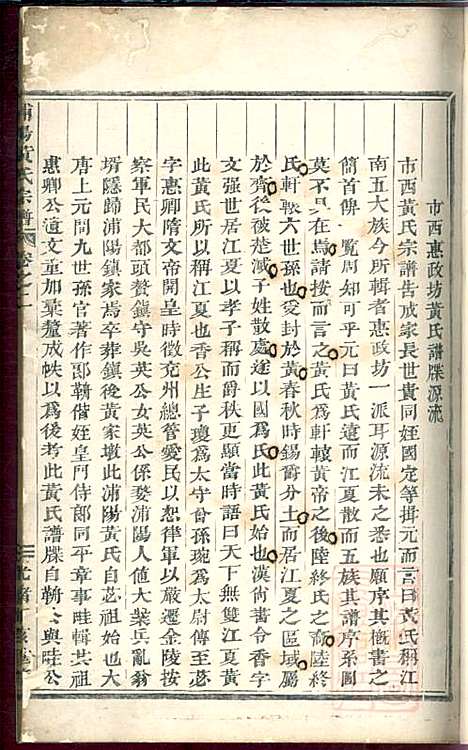 市西惠政坊黃氏譜牒源流
市西黃氏宗譜告成家長世貴同姪國定等揖元而言曰黃氏稱江
南五大族今所輯者惠政坊一派耳源流未之悉也願序其概書之
簡首俾一覽周知可乎元曰黃氏遠而江夏散而五族其譜序系圖
莫不具在焉請按而言之黃氏爲軒轅黃帝之後陸終氏之裔陸終
氏軒轅六世孫也受封於黃春秋時錫爵分土而居江夏之區域屬
於齊後被楚滅子姓散處遂以國爲氏此黃氏始也漢尚書令香字
文强世居江夏以孝子稱而爵秩更顯當時語曰天下無雙江夏黃
此黃氏所以稱江夏也香公生子瓊爲太守曾孫琬爲太尉傳至苾
字惠卿隋文帝開皇時徵兗州總管愛民以恕律軍以嚴遷金陵按
察軍民大都頭贅鎮守吳英公女英公係婺浦陽人値大業兵亂翁
壻隱歸浦陽鎮家焉卒葬鎮後黃家墩此浦陽黃氏自苾祖始也大
唐上元間九世孫官著作郎鞫偕姪皇門侍郎同平章事畦輯其祖
惠卿公遺文重加纂釐成帙以爲後考此黃氏譜牒自鞫公與畦公
浦陽黃氏宗譜 卷之一